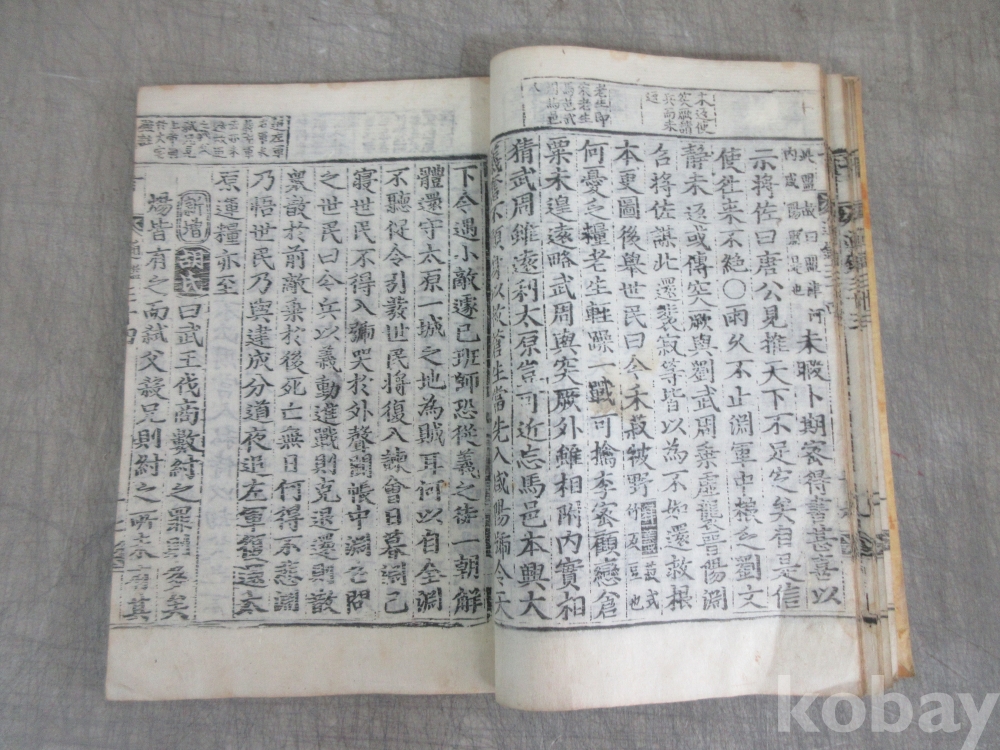 未返使
突厥請
兵而未
返
老生即
宋老生
馬邑武
周馬邑
人
洪盟咸曰盟津河
内咸陽盟是也
未暇卜期密得書甚喜以
示將佐曰唐公見推天下不足定矣自是信
使徃来不絶〇雨久不止淵軍中糧乏劉文
静未返或傳突厥與劉武周乗虚襲晉陽淵
召將佐謀北還裴寂等皆以為不如還救根
本更圖後舉世民曰今禾菽被野
菽式
竹反豆也
何憂乏糧老生軽躁一戰可擒李密顧戀倉
粟未遑遠略武周與突厥外雖相附内實相
猜武周雖遠利太原豈可近忘馬邑本興大
義奮不顧身以救蒼生當先入咸陽號令天
下今遇小敵遽已班師恐從義之徒一朝解
體還守太原一城之地為賊耳何以自全淵
不聽促令引發世民將復入諫會日暮淵已
寝世民不得入號哭於外聲聞帳中淵召問
之世民曰今兵以義動進戰則克退還則散
衆散於前敵乗於後死亡無日何得不悲淵
乃悟世民乃與建成分道夜追左軍復還太
原運糧亦至
新增
胡氏
曰武王伐商數紂之罪則多矣
湯皆有之而弑父殺兄則紂之所未有其
kobay